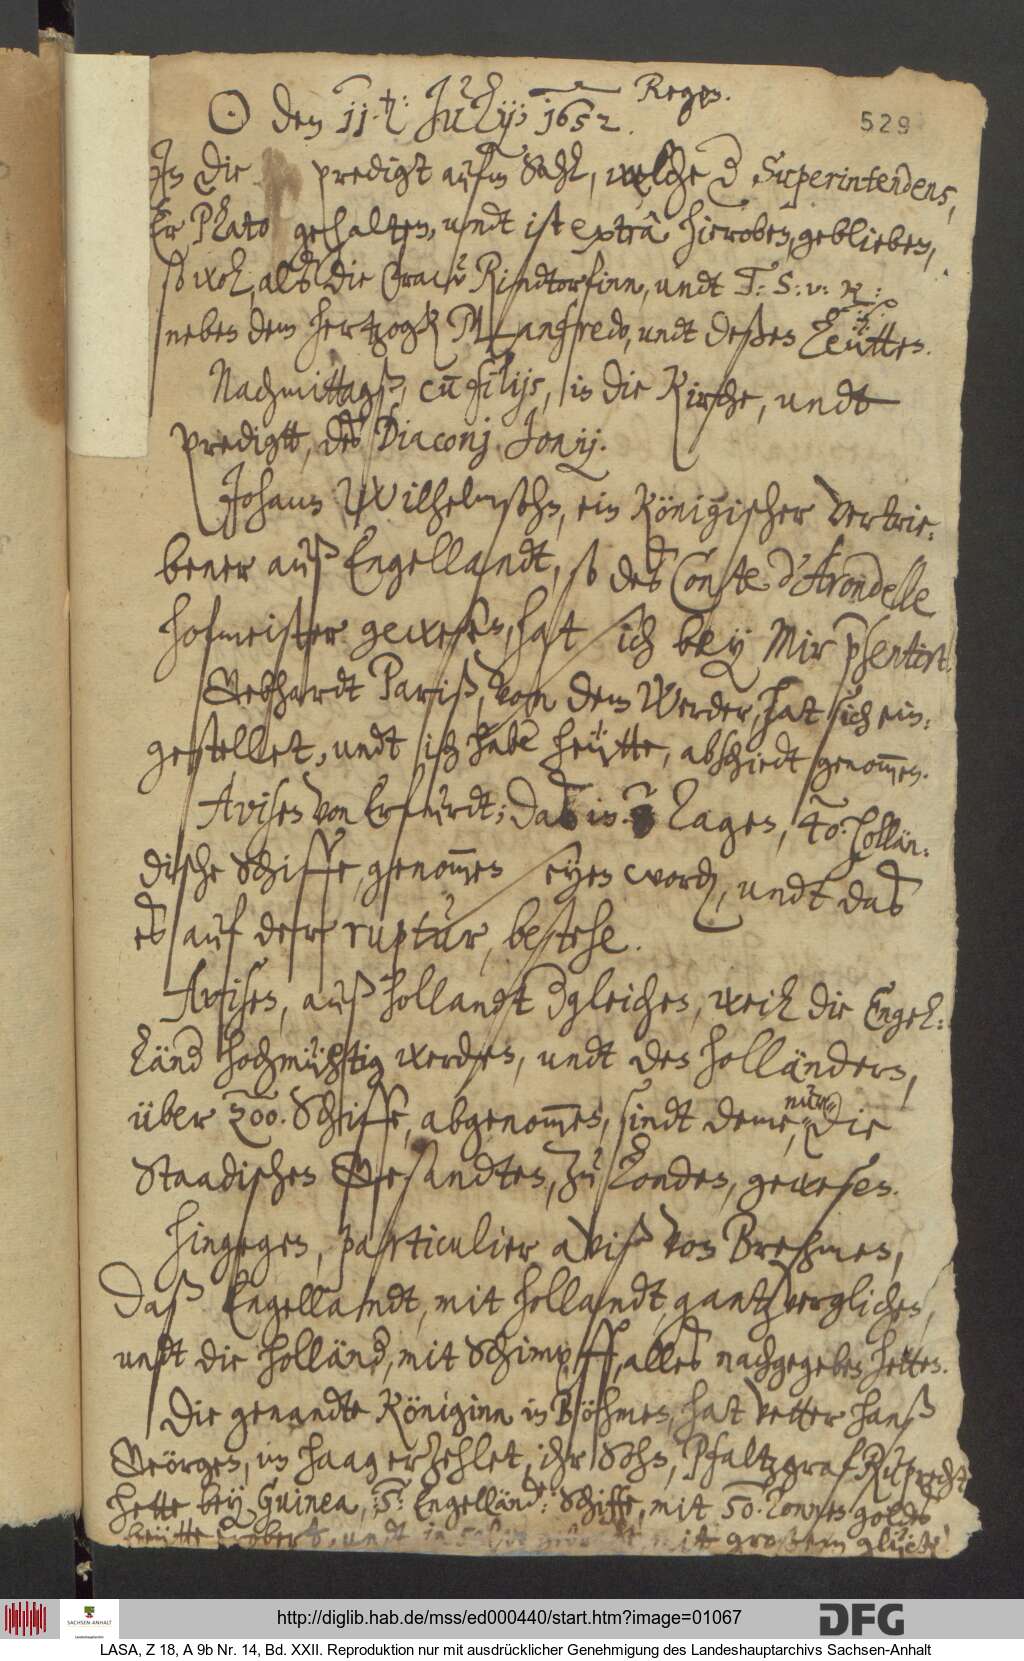 ☉ den 11.t: Julij; 1652. Regen.
529
In die predigt aufm Sahl, welche d Superintendens,
Er Plato gehalten, undt ist extra hieroben, geblieben,
so wol, alß die Rindtorfinn, undt T: S: v: R:
neben dem hertzogk Manfredo, undt deßen Leütten.
Nachmittagß, cū filijs, in die Kirche, undt
predigtt, des Diaconj Jonij.
Johann Wilhelmsohn, ein Königischer vertrie-
bener auß Engellandt, so des Conte d'Arondelle
hofmeister gewesen, hat sich bey Mir p̄sentirt.
Gebhardt Pariß, von dem Werder, hat sich ein-
gestellet, undt ich habe heütte, abschiedt genom̄en.
Avisen von Erfurdt; daß in 3 Tagen, 40. hollän-
dische Schiffe, genom̄en seyen word, undt das
es auf der ruptur, bestehe.
Avisen, auß hollandt dgleichen, weil die Engel-
länd hochmühtig werden, undt den holländern,
über 200. Schiffe, abgenom̄en, sindt deme, nur die
Staadischen Gesandten, zu Londen, gewesen.
Hingegen, particulier aviß von Brehmen,
daß Engellandt, mit hollandt, gantz verglichen,
undt die holländ, mit Schimpff, alles nachgegeben hetten.
Die genandte Königinn in Böhmen, hat Vetter Hanß
Geörgen, im Haag erzehlet, ihr Sohn, Pfaltzgraf Ruprecht
hette bey Guinea, 5: Engelländ: Schiffe, mit 50. Tonnen goldes
undt mit großem glück
http://diglib.hab.de/mss/ed000440/start.htm?image=01067
SACHSEN-ANHALT
DFG
LASA, Z 18, A 9b Nr. 14, Bd. XXII. Reproduktion nur mit ausdrücklicher Genehmigung des Landeshauptarchivs Sachsen-Anhalt